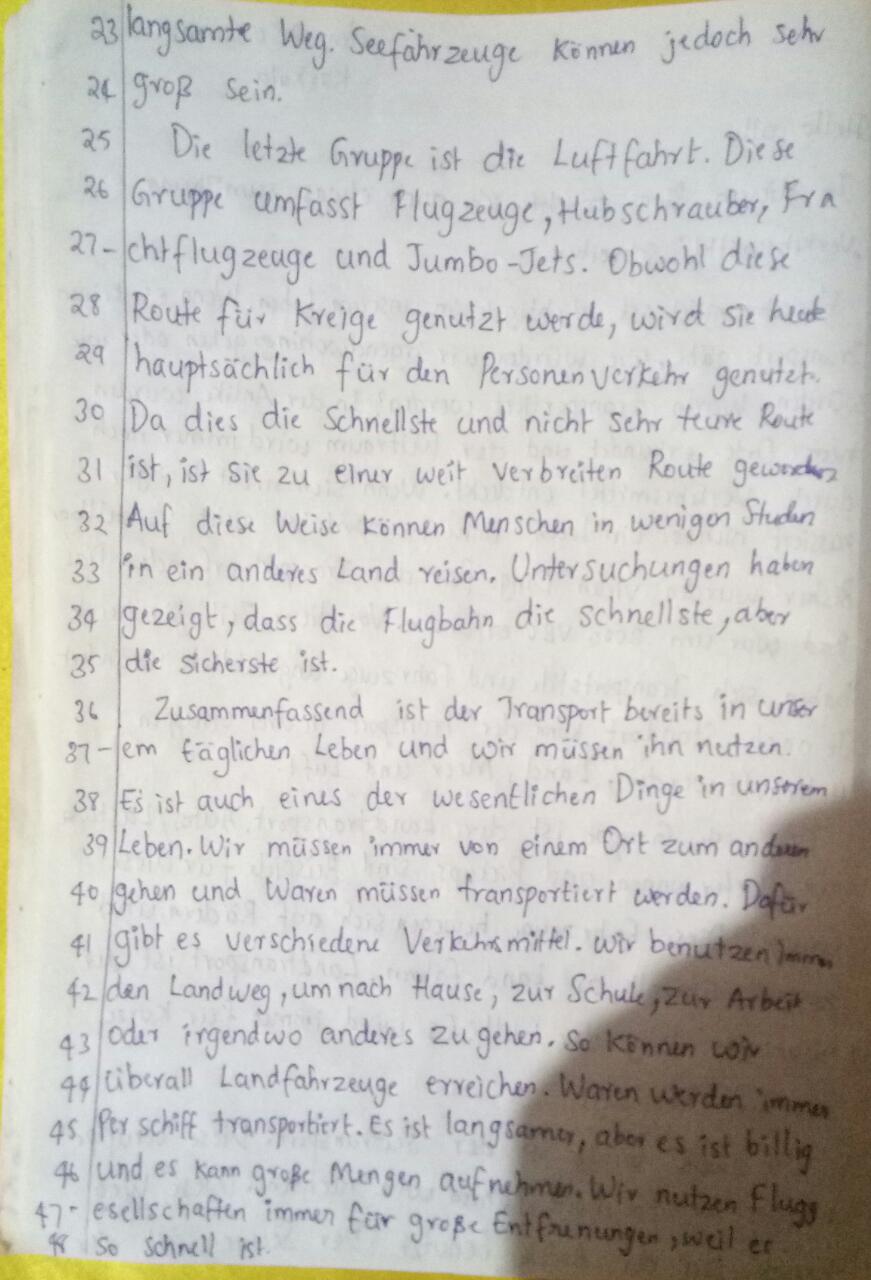 23 langsamte Weg. Seefahrzeuge können jedoch sehr
24 groß sein.
25 Die letzte Gruppe ist die Luftfahrt. Diese
26 Gruppe umfasst Flugzeuge, Hubschrauber, Fra
27- chtflugzeuge und Jumbo-Jets. Obwohl diese
28 Route für Kreige genutzt werde, wird sie heute
29 hauptsächlich für den Personenverkehr genutzt.
30 Da dies die Schnellste und nicht sehr teure Route
31 ist, ist sie zu einer weit verbreiten Route geworden
32 Auf diese Weise können Menschen in wenigen Studen
33 in ein anderes Land reisen. Untersuchungen haben
34 gezeigt, dass die Flugbahn die schnellste, aber
35 die sicherste ist.
36 Zusammenfassend ist der Transport bereits in unser
37- em täglichen Leben und wir müssen ihn nutzen.
38 Es ist auch eines der wesentlichen Dinge in unserem
39 Leben. Wir müssen immer von einem Ort zum anderen
40 gehen und Waren müssen transportiert werden. Dafür
41 gibt es verschiedene Verkehrsmittel. wir benutzen immer
42 den Landweg, um nach Hause, zur Schule, zur Arbeit
43 oder irgendwo anderes zu gehen. So können wir
44 überall Landfahrzeuge erreichen. Waren werden immer
45 Per schiff transportiert. Es ist langsamer, aber es ist billig
46 und es kann große Mengen aufnehmen. Wir nutzen Flugg
47- esellschaften immer für große Entfrenungen, weil er
48 so schnell ist.